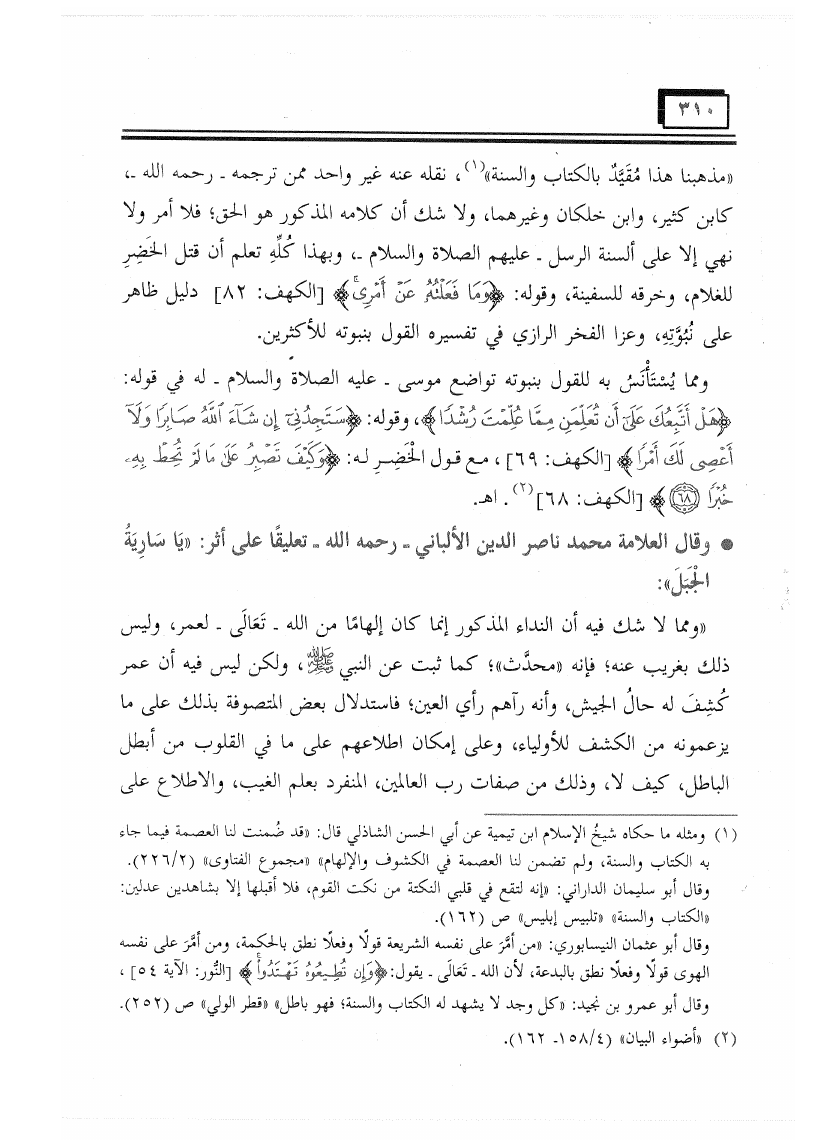 ٣١٠
«مذهبنا هذا مُقَيَّدٌ بالكتاب والسنة»(١)، نقله عنه غير واحد ممن ترجمه ـ رحمه الله ـ،
كابن كثير، وابن خلكان وغيرهما، ولا شك أن كلامه المذكور هو الحق؛ فلا أمر ولا
نهي إلا على ألسنة الرسل ـ عليهم الصلاة والسلام ـ، وبهذا كُلِّهِ تعلم أن قتل الخَضِرِ
للغلام، وخرقه للسفينة، وقوله: ﴿وَمَا فَعَلْتُهُۥ عَنْ أَمْرِىۚ﴾ [الكهف: ٨٢] دليل ظاهر
على نُبُوَّتِهِ، وعزا الفخر الرازي في تفسيره القول بنبوته للأكثرين.
ومما يُسْتَأْنَسُ به للقول بنبوته تواضع موسى ـ عليه الصلاة والسلام ـ له في قوله:
﴿هَلْ أَتَّبِعُكَ عَلَىٰٓ أَن تُعَلِّمَنِ مِمَّا عُلِّمْتَ رُشْدًا﴾، وقوله: ﴿سَتَجِدُنِىٓ إِن شَآءَ ٱللَّهُ صَابِرًا وَلَآ
أَعْصِى لَكَ أَمْرًا﴾ [الكهف: ٦٩]، مع قول الخَضِرِ له: ﴿وَكَيْفَ تَصْبِرُ عَلَىٰ مَا لَمْ تُحِطْ بِهِۦ
خُبْرًا ٦٨﴾ [الكهف: ٦٨](٢). اهـ.
● وقال العلامة محمد ناصر الدين الألباني ـ رحمه الله ـ تعليقًا على أثر: «يَا سَارِيَةُ
الْجَبَلَ»:
«ومما لا شك فيه أن النداء المذكور إنما كان إلهامًا من الله ـ تَعَالَى ـ لعمر، وليس
ذلك بغريب عنه؛ فإنه «محدَّث»؛ كما ثبت عن النبي ﷺ، ولكن ليس فيه أن عمر
كُشِفَ له حالُ الجيش، وأنه رآهم رأي العين؛ فاستدلال بعض المتصوفة بذلك على ما
يزعمونه من الكشف للأولياء، وعلى إمكان اطلاعهم على ما في القلوب من أبطل
الباطل، كيف لا، وذلك من صفات رب العالمين، المنفرد بعلم الغيب، والاطلاع على
(١) ومثله ما حكاه شيخُ الإسلام ابن تيمية عن أبي الحسن الشاذلي قال: «قد ضُمنت لنا العصمة فيما جاء
به الكتاب والسنة، ولم تضمن لنا العصمة في الكشوف والإلهام» «مجموع الفتاوى» (٢٢٦/٢).
وقال أبو سليمان الداراني: «إنه لتقع في قلبي النكتة من نكت القوم، فلا أقبلها إلا بشاهدين عدلين:
«الكتاب والسنة» «تلبيس إبليس» ص (١٦٢).
وقال أبو عثمان النيسابوري: «من أمَّرَ على نفسه الشريعة قولًا وفعلًا نطق بالحكمة، ومن أمَّرَ على نفسه
الهوى قولًا وفعلًا نطق بالبدعة، لأن الله ـ تَعَالَى ـ يقول: ﴿وَإِن تُطِيعُوهُ تَهْتَدُوا۟ۚ﴾ [النُّور: الآية ٥٤]،
وقال أبو عمرو بن نجيد: «كل وجد لا يشهد له الكتاب والسنة؛ فهو باطل» «قطر الولي» ص (٢٥٢).
(٢) «أضواء البيان» (١٥٨/٤ـ ١٦٢).